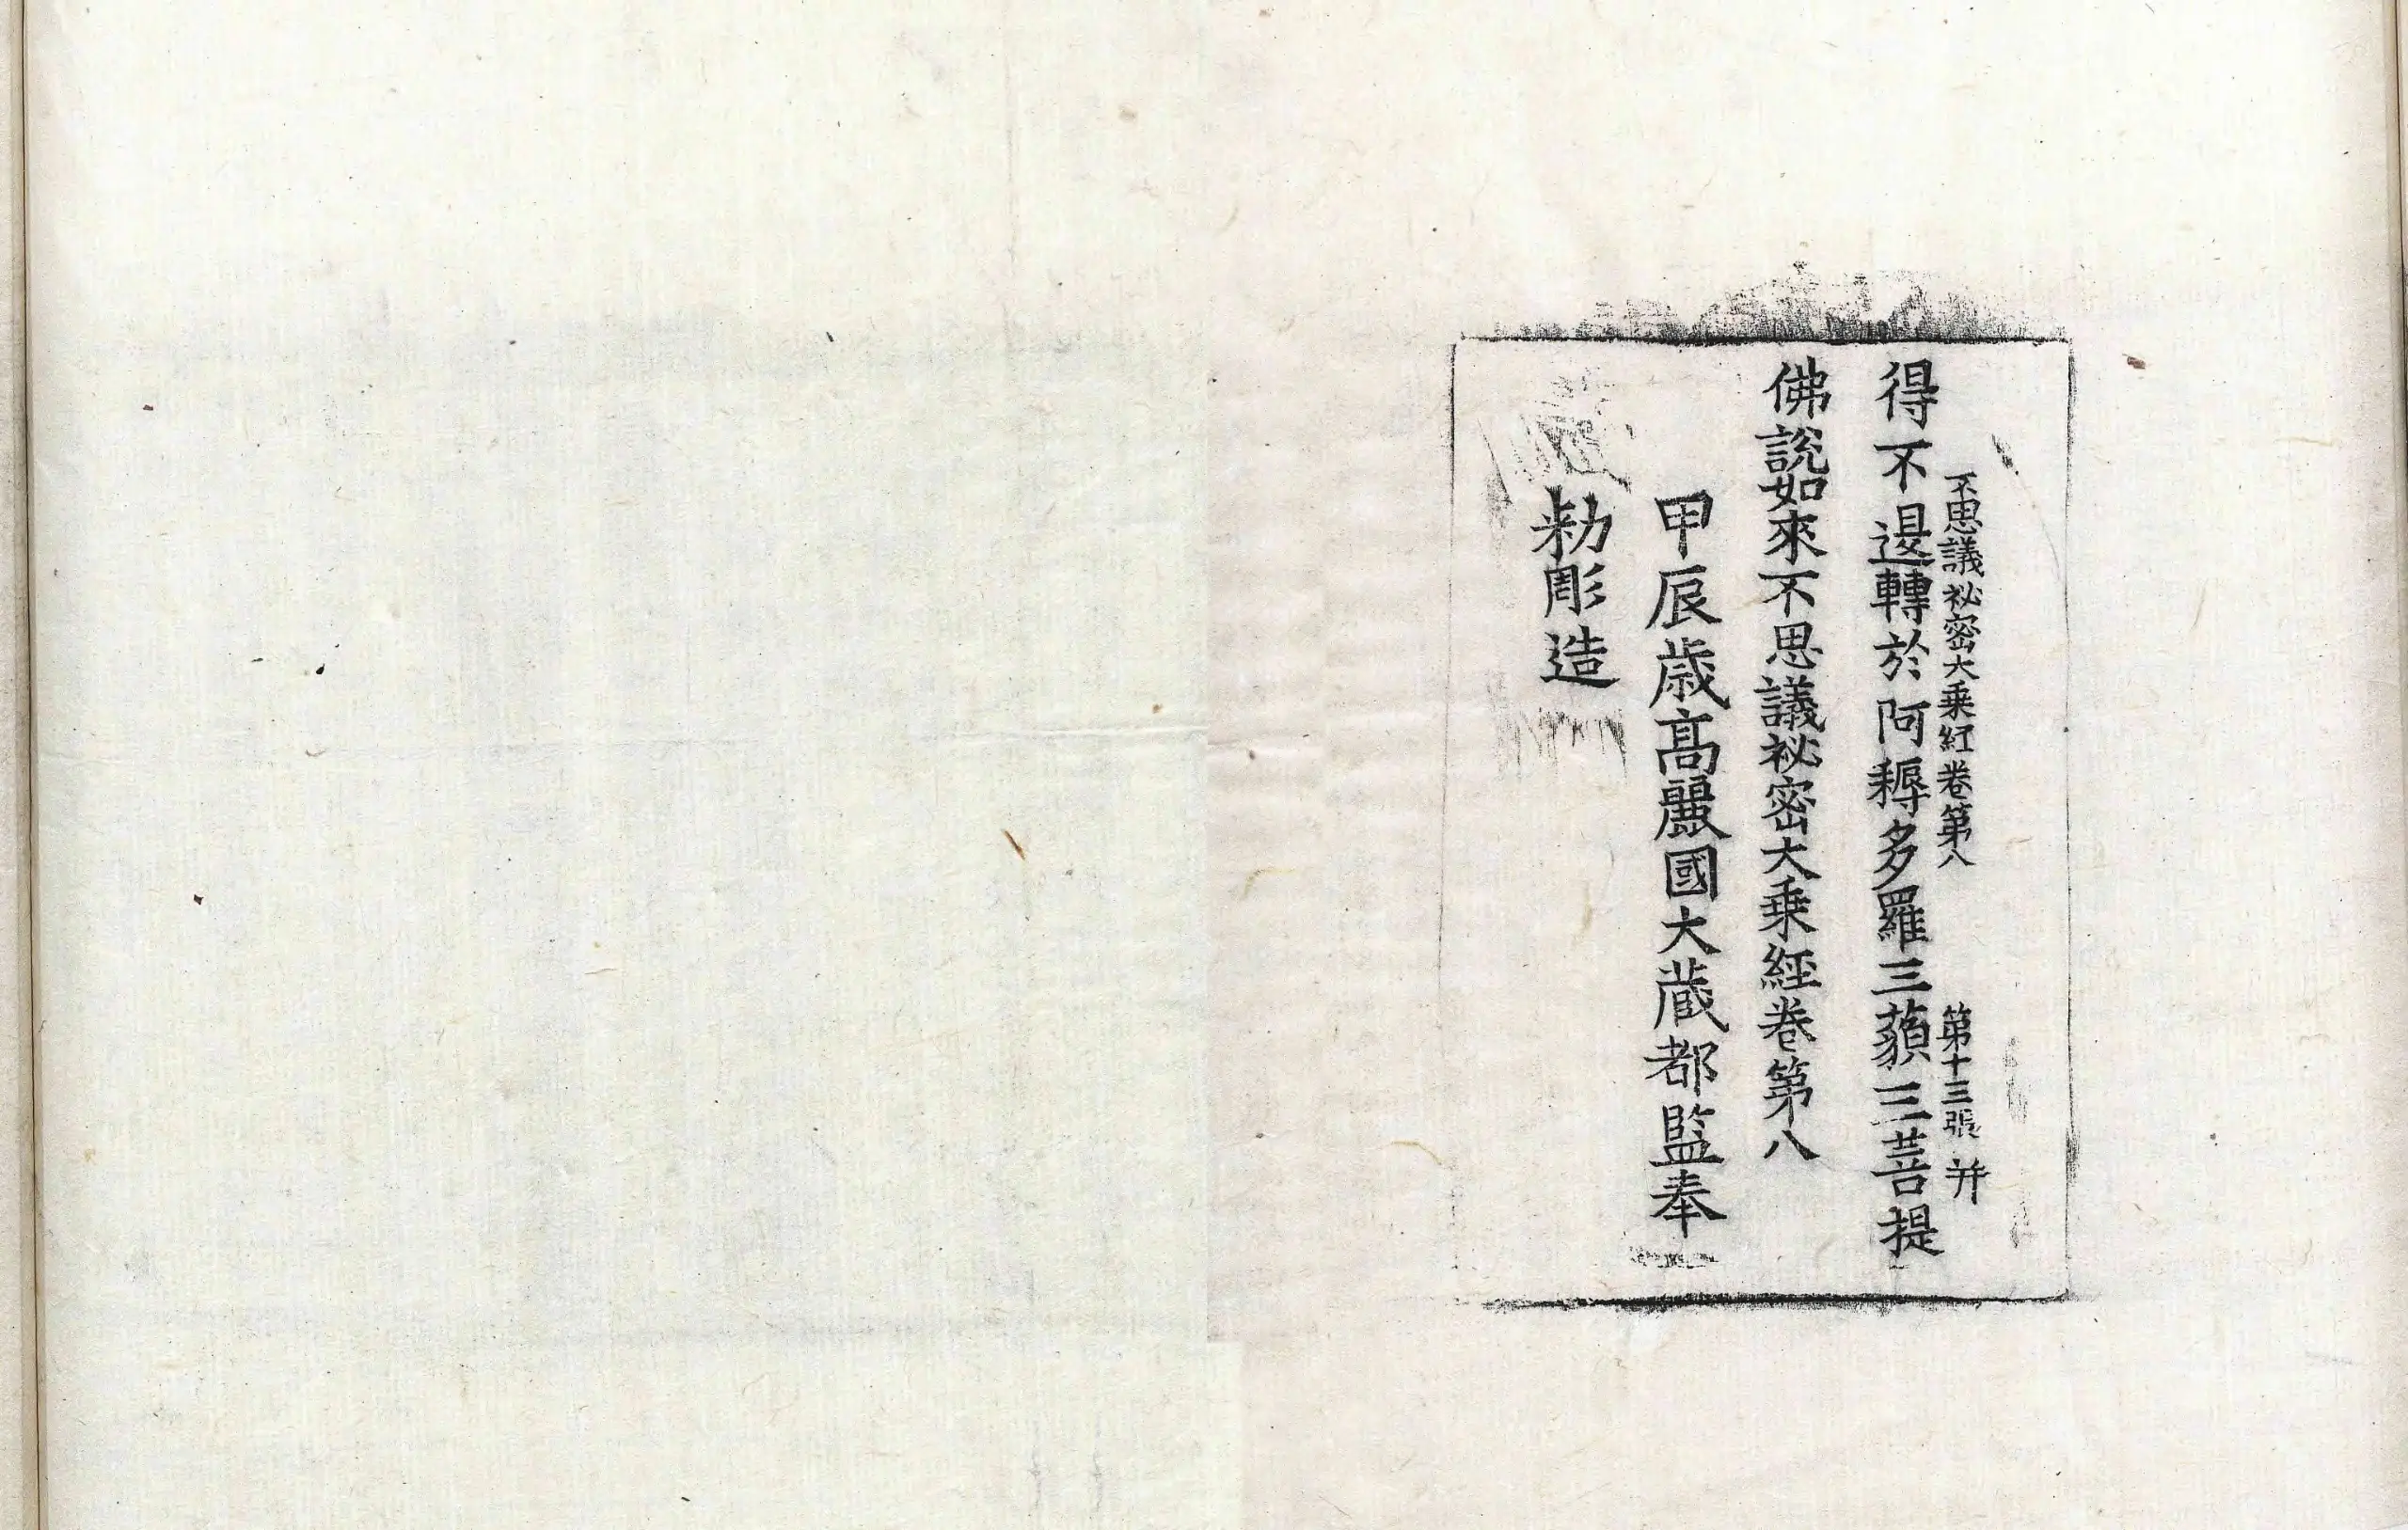 不思議祕密大乗経卷第八 第十三張 并
得不退轉於阿耨多羅三藐三菩提
佛說如來不思議祕密大乗經卷第八
甲辰歳髙麗國大藏都監奉
勑彫造